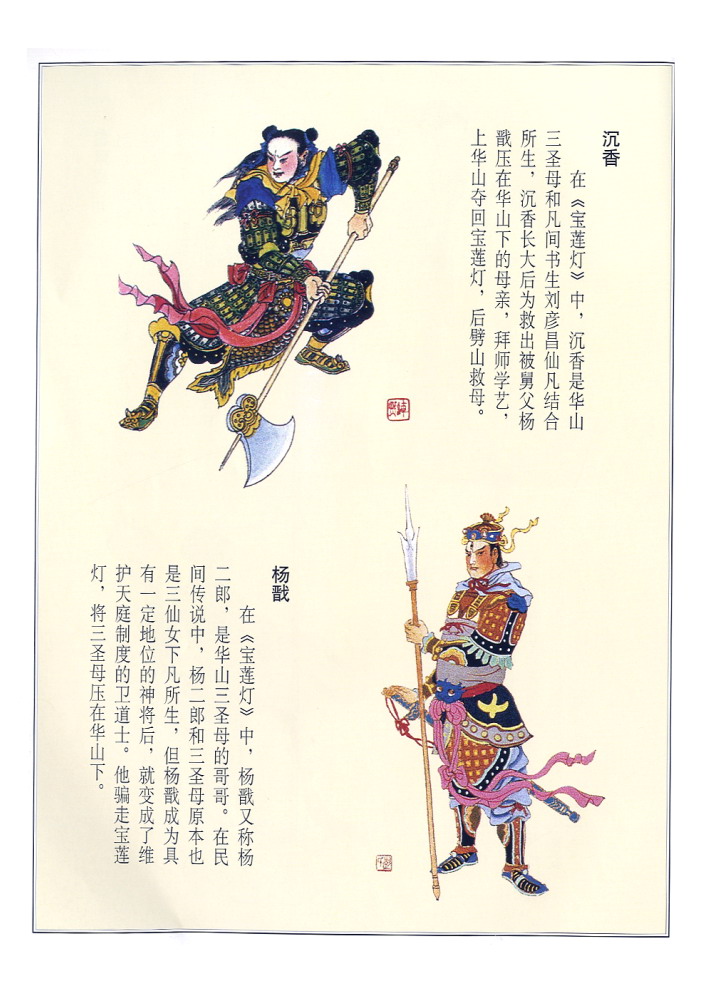 沉香
在《宝莲灯》中，沉香是华山
三圣母和凡间书生刘彦昌仙凡结合
所生，沉香长大后为救出被舅父杨
戬压在华山下的母亲，拜师学艺，
上华山夺回宝莲灯，后劈山救母。
杨戬
在《宝莲灯》中，杨戬又称杨
二郎，是华山三圣母的哥哥。在民
间传说中，杨二郎和三圣母原本也
是三仙女下凡所生，但杨戬成为具
有一定地位的神将后，就变成了维
护天庭制度的卫道士。他骗走宝莲
灯，将三圣母压在华山下。